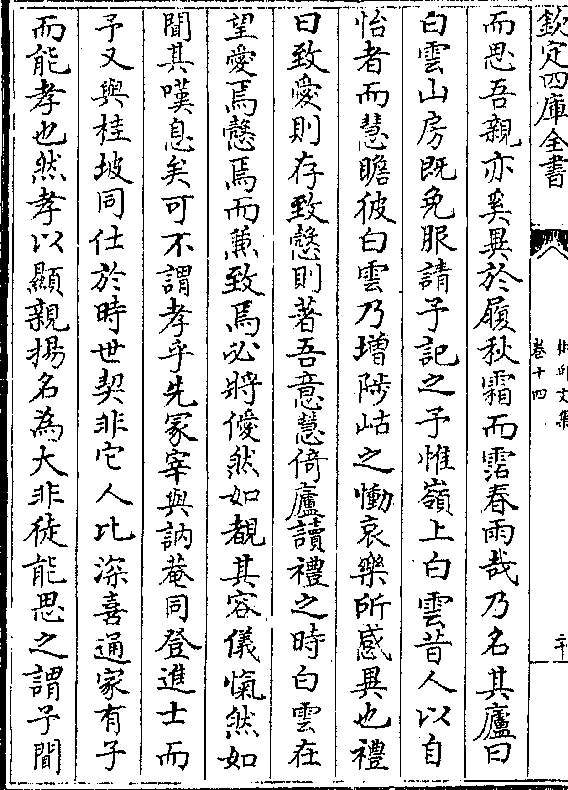 欽定四庫全書
卷十四
而思吾親亦奚異於履秋霜而霑春雨哉乃名其廬曰
白雲山房既免服請予記之予惟嶺上白雲昔人以自
怡者而慧瞻彼白雲乃增陟岵之慟哀樂所感異也禮
曰致愛則存致慤則著吾意慧倚廬讀禮之時白雲在
望愛焉慤焉而兼致焉必將僾然如覩其容儀愾然如
聞其嘆息矣可不謂孝乎先冢宰與訥菴同登進士而
予又與桂坡同仕於時世契非它人比深喜通家有子
而能孝也然孝以顯親揚名為大非徒能思之謂予聞